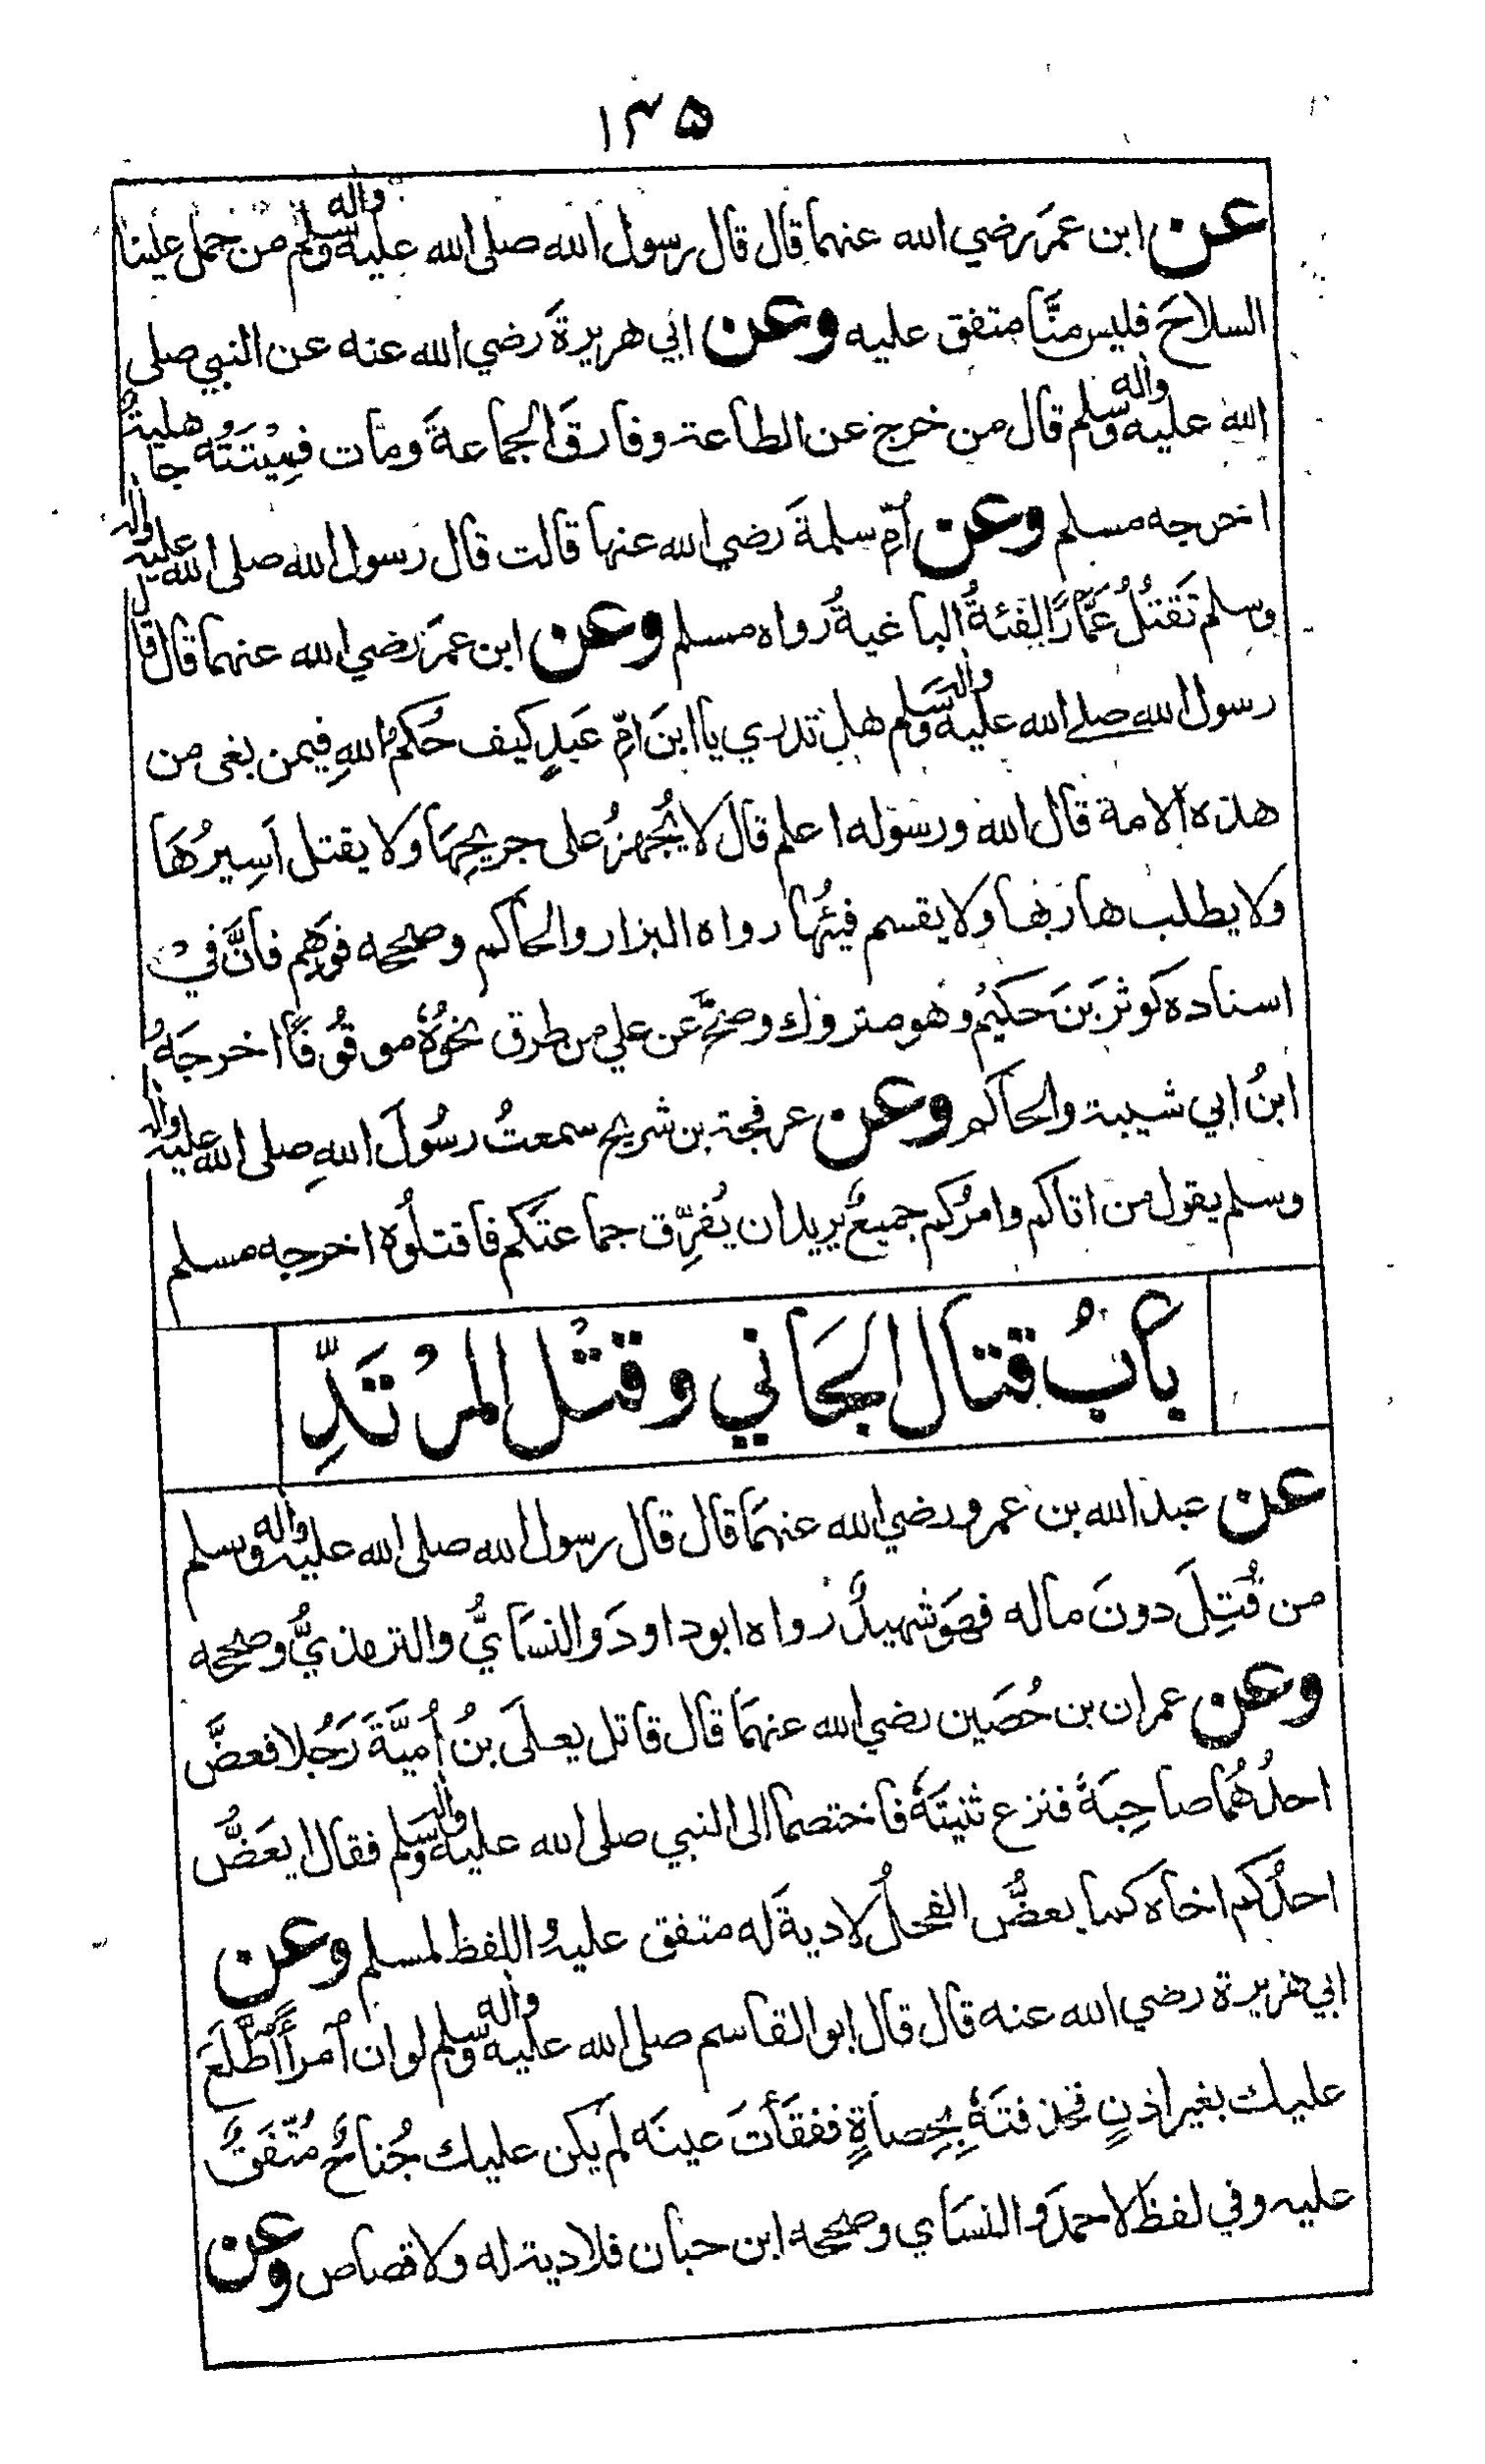 ١٣٥
عن ابن عمرَ رضي الله عنهما قال قال رسول الله صلى الله عليه وآله وسلم من حمل علينا
السلاحَ فليس منَّا متفق عليه وعن ابي هريرةَ رضي الله عنه عن النبي صلى
الله عليه وآله وسلم قال من خرج عن الطاعة وفارقَ الجماعةَ ومات فمِيْتَتُه جاهليةٌ
اخرجه مسلم وعن اُمِّ سلمةَ رضي الله عنها قالت قال رسول الله صلى الله عليه وآله
وسلم تَقتُلُ عَمَّارًا الفئةُ الباغيةُ رواه مسلم وعن ابن عمرَ رضي الله عنهما قال قال
رسول الله صلے الله عليه وآله وسلم هل تدري يا ابنَ امِّ عَبدٍ كيف حُكمُ اللهِ فيمن بغى من
هذه الامة قال الله ورسوله اعلم قال لا يُجهزُ على جريحِهَا ولا يقتل اَسِيرُهَا
ولا يطلب هاربها ولا يقسم فيئُها رواه البزار والحاكم وصححه فوَهِم فانَّ في
اسناده كوثرَ بنَ حكيم وهو متروك وصحَّ عن علي من طرق نحوُهٗ موقُوفًا اخرجَهُ
ابنُ ابي شيبة والحاكم وعن عرفجة بن شريح سمعتُ رسُولَ اللهِ صلى الله عليه وآله
وسلم يقول من اتاكم وامرُكم جميعٌ يريد ان يُفرِّق جماعتَكم فاقتلُوْه اخرجه مسلم
بابُ قتال الجَاني وقتْل المرْتَدِّ
عن عبد الله بن عمرو رضي الله عنهمَا قال قال رسول الله صلى الله عليه وآله وسلم
من قُتِلَ دونَ ماله فهوَ شهيدٌ رواه ابو داودَ والنسَائيُّ والترمذيُّ وصححه
وعن عمران بن حُصَين رضي الله عنهمَا قال قاتل يعلَى بنُ اُميَّةَ رَجُلا فعضَّ
احدُهُما صاحِبَهٗ فنزع ثنيتَهٗ فاختصما الى النبي صلى الله عليه وآله وسلم فقال ايعَضُّ
احدُكم اخاه كما يعضُّ الفحلُ لا ديةَ له متفق عليه واللفظ لمسلم وعن
ابي هريرة رضي الله عنه قال قال ابو القاسم صلى الله عليه وآله وسلم لو ان امرأً اطَّلَعَ
عليك بغير اذنٍ فحذفتَهٗ بِحصاةٍ ففقَأتَ عينَه لم يكن عليك جُناحٌ مُتّفَقٌ
عليه وفي لفظ لاحمدَ والنسَاي وصححه ابن حبان فلا دية له ولا قصاص وعن